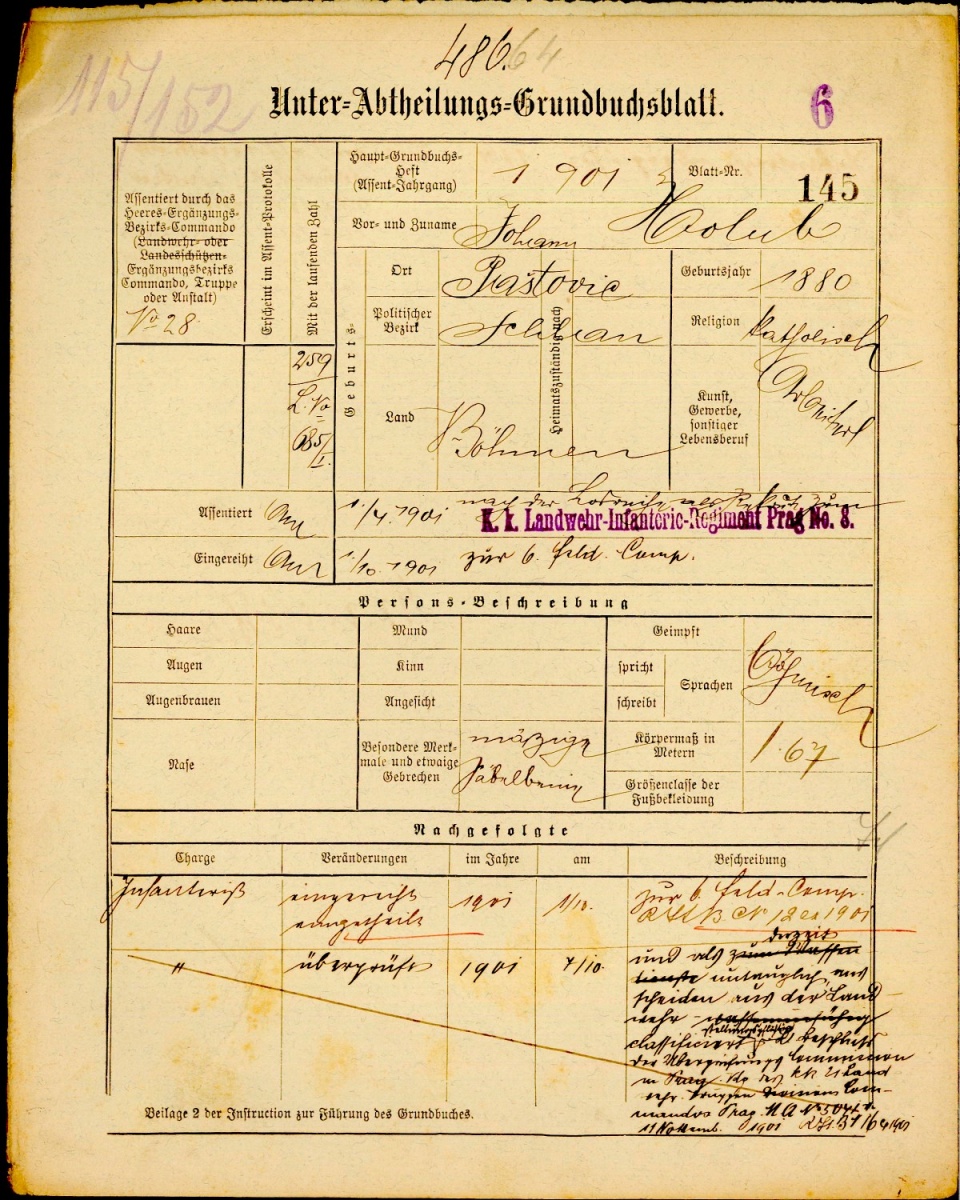 486. 64
115/152
Unter-Abtheilungs-Grundbuchsblatt.
6
Assentiert durch das
Heeres-Ergänzungs-
Bezirks-Commando
(Landwehr- oder
Landesschützen-
Ergänzungsbezirks
Commando, Truppe
oder Anstalt)
No 28.
Erscheint im Assent-Protokolle
Mit der laufenden Zahl
259
L. No
685/I.
Haupt-Grundbuchs-
Heft
(Assent-Jahrgang)
1901
Blatt-Nr.
145
Vor- und Zuname
Johann Holub
Geburts-
Ort
Geburtsjahr
1880
Politischer
Bezirk
Religion
katholisch
Land
Böhmen
Heimatszuständig nach
Kunst,
Gewerbe,
sonstiger
Lebensberuf
Assentiert Am 1./4. 1901 nach der
K. k. Landwehr-Infanterie-Regiment Prag No. 8.
Eingereiht Am 1./10. 1901 zur 6. Feld. Comp.
Persons-Beschreibung
Haare
Mund
Geimpft
Augen
Kinn
spricht
Sprachen
Böhmisch
Augenbrauen
Angesicht
schreibt
Nase
Besondere Merk-
male und etwaige
Gebrechen
mäßige
Säbelbeine
Körpermaß in
Metern
1.67
Größenclasse der
Fußbekleidung
Nachgefolgte
71
Charge Veränderungen im Jahre am Beschreibung
Infanterist eingereiht 1901 1/10. zur 6. Feld-Comp.
eingetheilt 12 ex 1901
" überprüft 1901 7/10. derzeit
und als zum Waffen
dienste untauglich, aus
scheiden aus der Land
wehr
classificiert Beschluß
der Überprüfungs Commission
in Prag. des kk 21 Land
wehr Truppen Divisions Com-
mandos Prag. M A No
11 Novemb. 1901
Beilage 2 der Instruction zur Führung des Grundbuches.